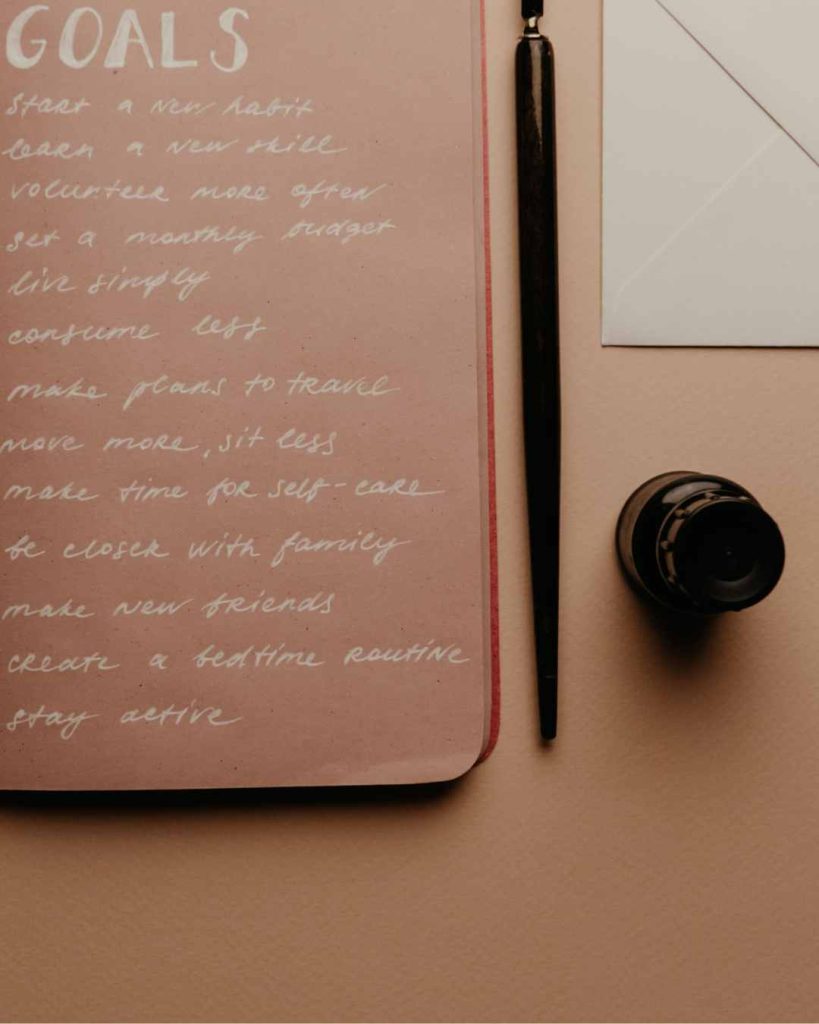 GOALS
start a new habit
learn a new skill
volunteer more often
set a monthly budget
live simply
consume less
make plans to travel
move more, sit less
make time for self-care
be closer with family
make new friends
create a bedtime routine
stay active